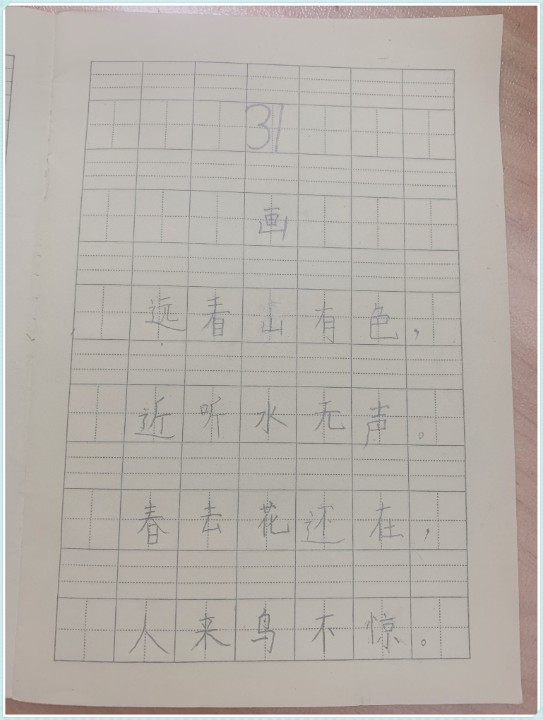 31
画
远看山有色，
近听水无声。
春去花还在，
人来鸟不惊。